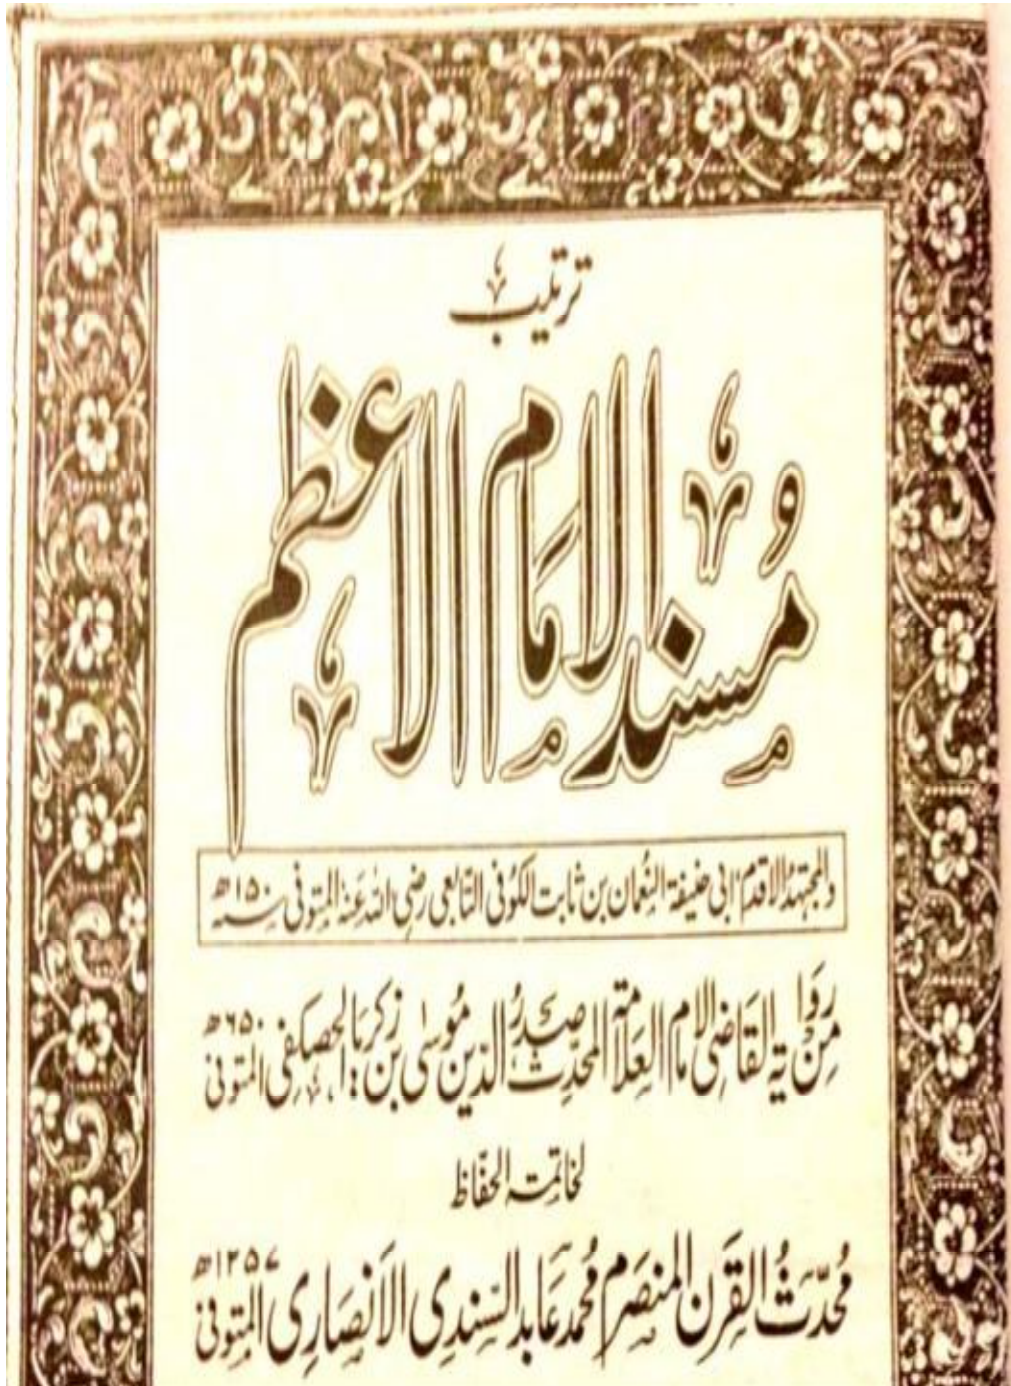 ترتیب
مُسند الامام الاعظم
والمجتہد الاقدم ابی حنیفۃ النعمان بن ثابت الکوفی التابعی رضی اللہ عنہ المتوفی سنہ ۱۵۰ھ
من روایۃ القاضی الامام العلامۃ المحدث صدر الدین موسیٰ بن زکریا الحصکفی المتوفی ۶۵۰ھ
لخاتمۃ الحفّاظ
مُحدّثُ القرن المنصرم مُحمد عَابد السّندی الاَنصَاری المتوفی ۱۲۵۷ھ